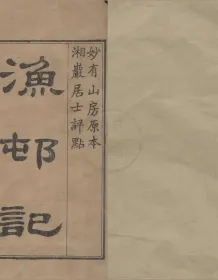 妙有山房原本
湘巖居士評點
漁邨記